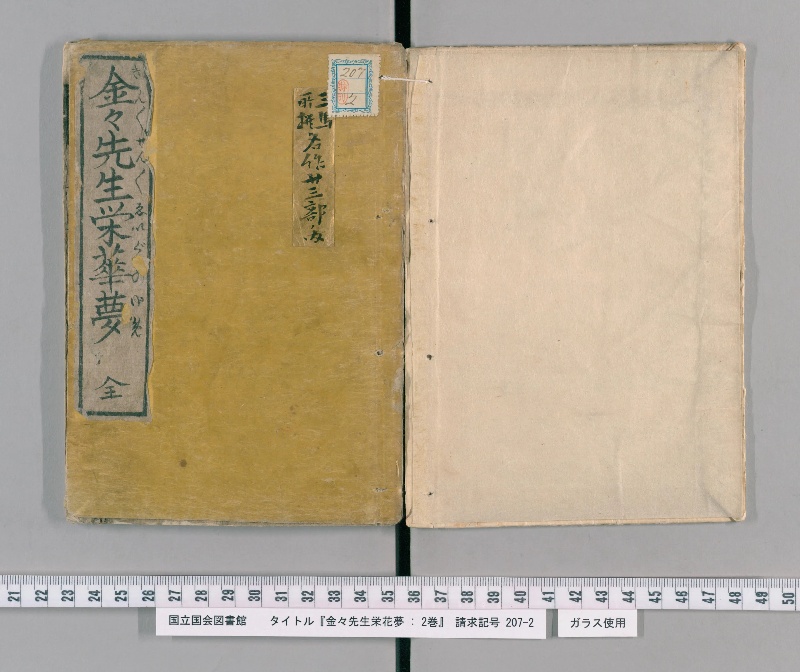 金々先生栄華夢
全
三馬
所撰
名作廿三部ノ内
207
2
21 22 23 24 25 26 27 28 29 30 31 32 33 34 35 36 37 38 39 40 41 42 43 44 45 46 47 48 49 50
国立国会図書館 タイトル『金々先生栄花夢 : 2巻』 請求記号 207-2
ガラス使用